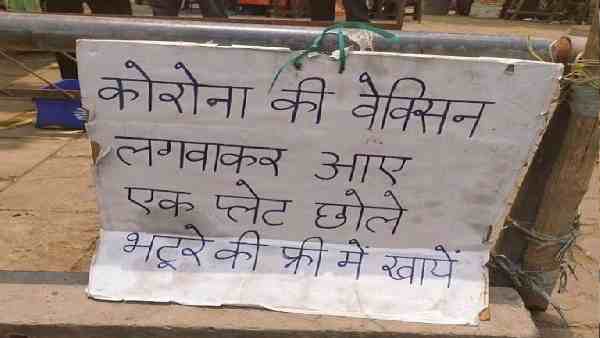 कोरोना की वेक्सिन
लगवाकर आए
एक प्लेट छोले
भटूरे की फ्री में खायें